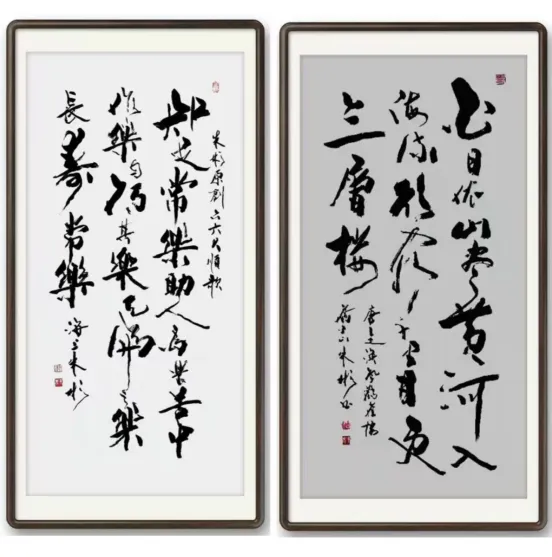 朱彬原創六六大順歌
知足常樂助人为樂苦中
作樂自得其樂天倫之樂
長壽常樂
海上朱彬
白日依山盡黄河入
海流欲窮千里目更
上一層楼
唐王之渙登鸛雀楼
朱彬书